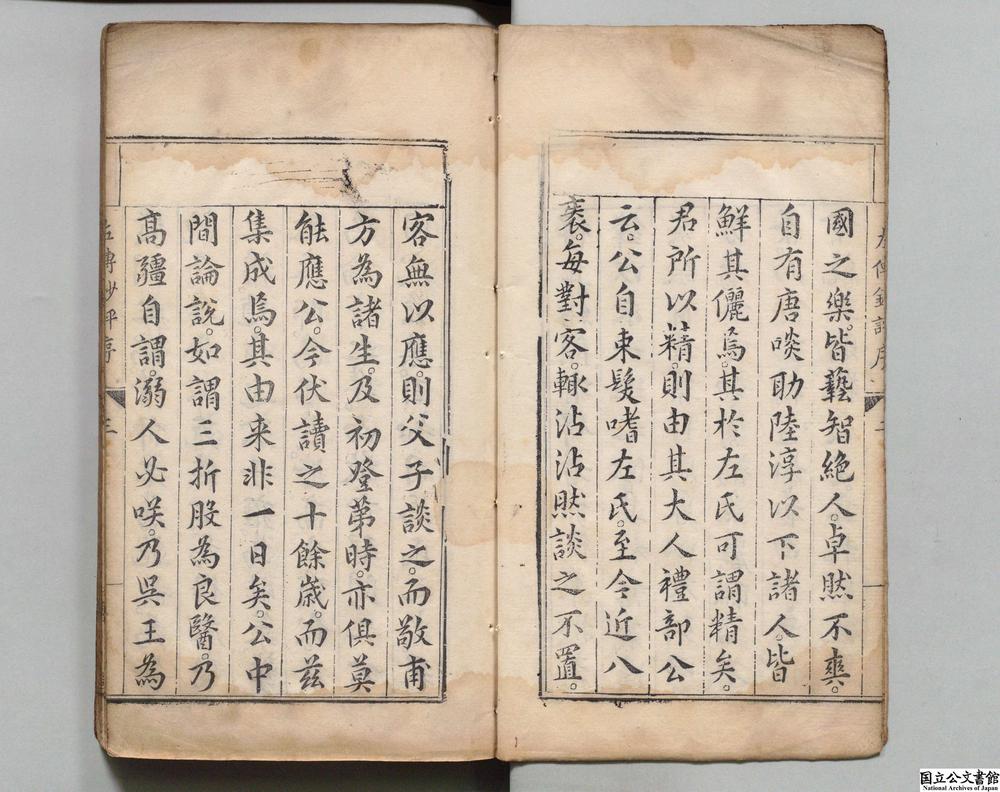 國之樂。皆藝智絶人。卓然不爽。
自有唐啖助陸淳以下諸人。皆
鮮其儷焉。其於左氏可謂精矣。
君所以精。則由其大人禮部公
云。公自束髮嗜左氏。至今近八
袠。每對客。輒沾沾然談之不置。
客無以應。則父子談之。而敬甫
方為諸生。及初登第時。亦俱莫
能應公。今伏讀之十餘歲。而茲
集成焉。其由来非一日矣。公中
間論說。如謂三折股為良醫。乃
高疆自謂。溺人必咲。乃呉王為
左傳鈔評序
三
国立公文書館
National Archives of Japan